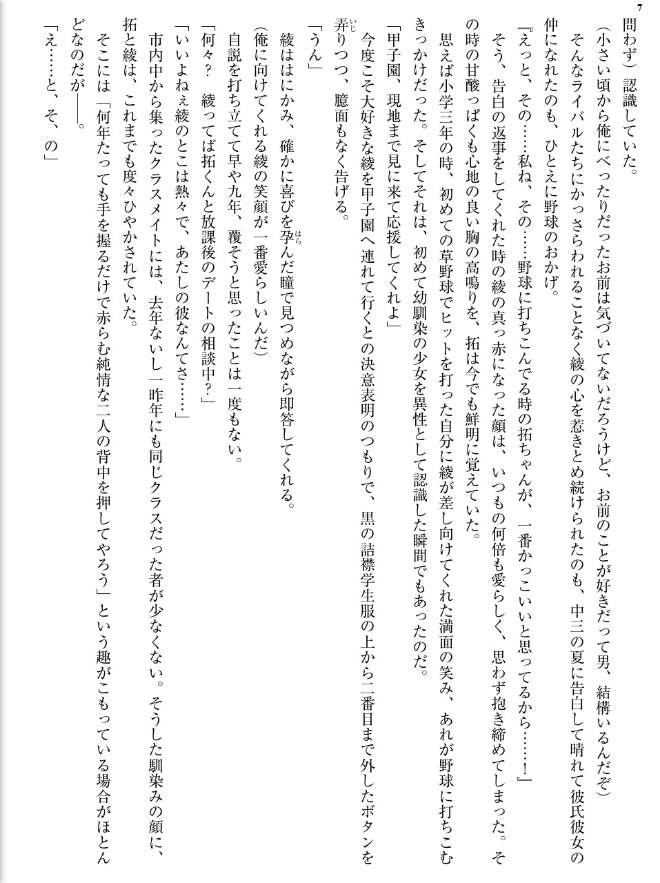 7
問わず）認識していた。
（小さい頃から俺にべったりだったお前は気づいてないだろうけど、お前のことが好きだって男、結構いるんだぞ）
そんなライバルたちにかっさらわれることなく綾の心を惹きとめ続けられたのも、中三の夏に告白して晴れて彼氏彼女の
仲になれたのも、ひとえに野球のおかげ。
『えっと、その……私ね、その……野球に打ちこんでる時の拓ちゃんが、一番かっこいいと思ってるから……！』
そう、告白の返事をしてくれた時の綾の真っ赤になった顔は、いつもの何倍も愛らしく、思わず抱き締めてしまった。そ
の時の甘酸っぱくも心地の良い胸の高鳴りを、拓は今でも鮮明に覚えていた。
思えば小学三年の時、初めての草野球でヒットを打った自分に綾が差し向けてくれた満面の笑み、あれが野球に打ちこむ
きっかけだった。そしてそれは、初めて幼馴染の少女を異性として認識した瞬間でもあったのだ。
「甲子園、現地まで見に来て応援してくれよ」
今度こそ大好きな綾を甲子園へ連れて行くとの決意表明のつもりで、黒の詰襟学生服の上から二番目まで外したボタンを
弄りつつ、臆面もなく告げる。
「うん」
綾ははにかみ、確かに喜びを孕んだ瞳で見つめながら即答してくれる。
（俺に向けてくれる綾の笑顔が一番愛らしいんだ）
自説を打ち立てて早や九年、覆そうと思ったことは一度もない。
「何々？　綾ってば拓くんと放課後のデートの相談中？」
「いいよねぇ綾のとこは熱々で、あたしの彼なんてさ……」
市内中から集ったクラスメイトには、去年ないし一昨年にも同じクラスだった者が少なくない。そうした馴染みの顔に、
拓と綾は、これまでも度々ひやかされていた。
そこには「何年たっても手を握るだけで赤らむ純情な二人の背中を押してやろう」という趣がこもっている場合がほとん
どなのだが――。
「え……と、そ、の」